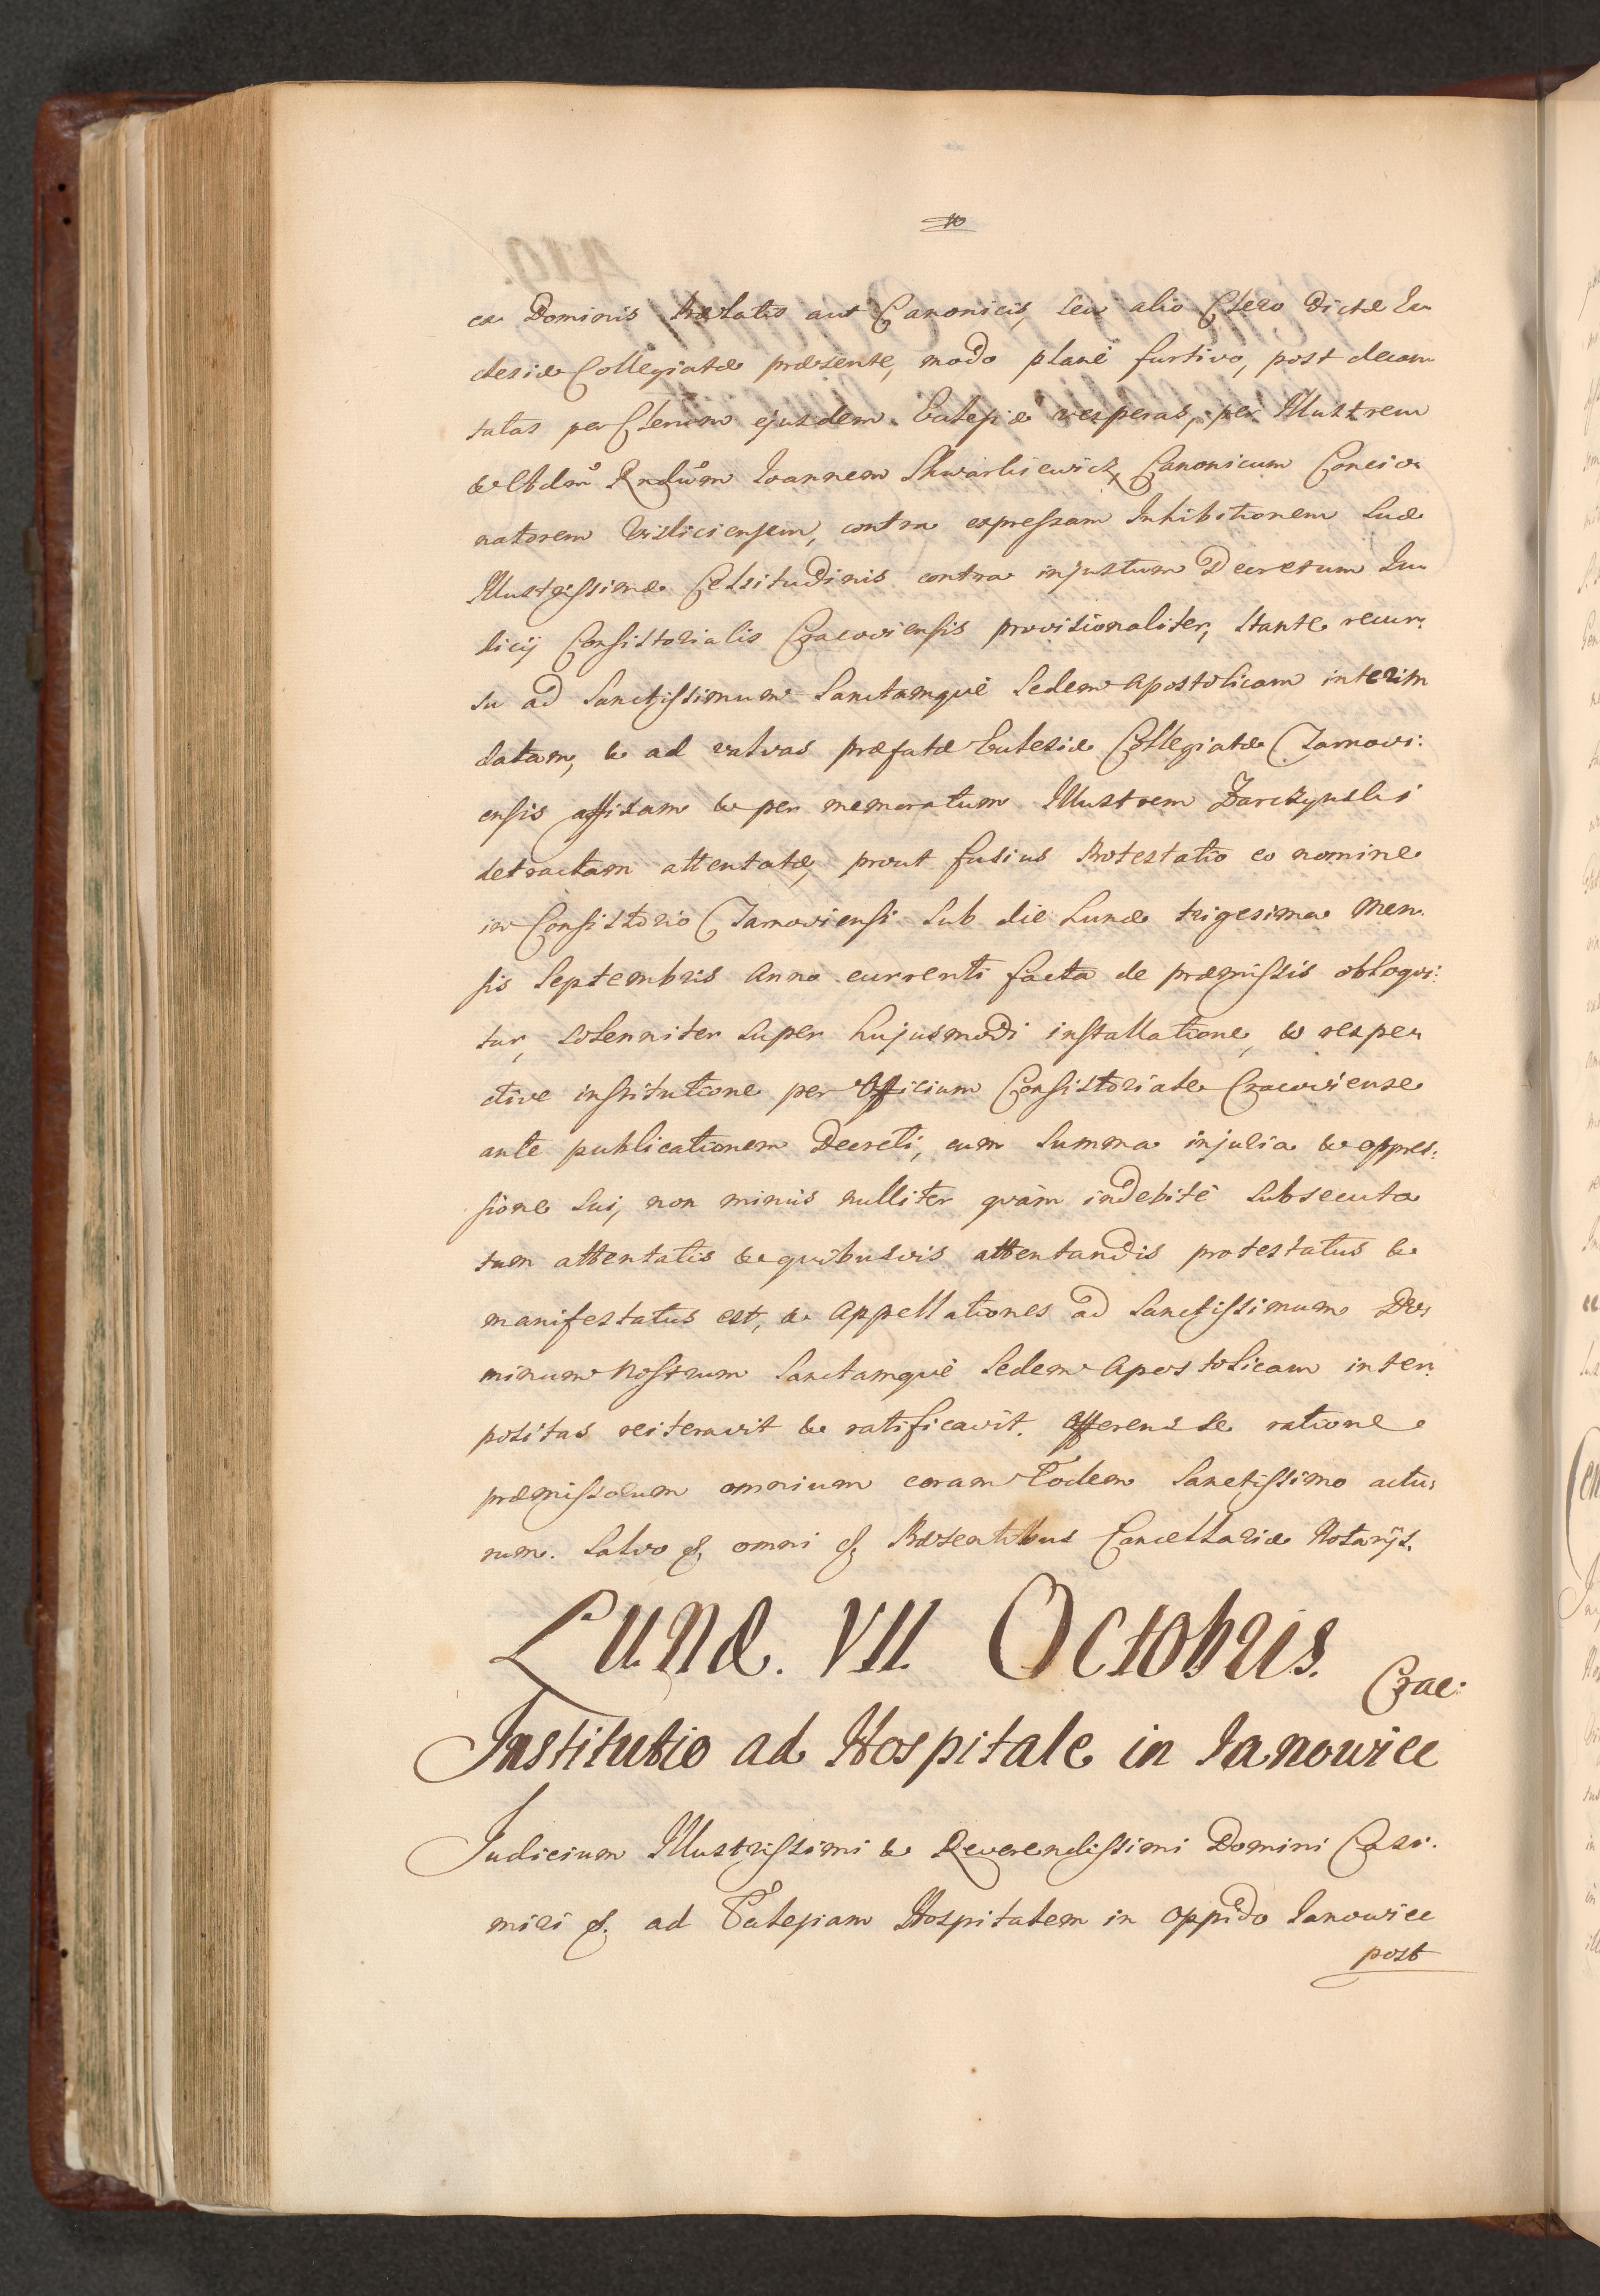 ex Dominis Prælatis aut Canonicis, seu alio Clero dictæ Ec
clesiæ Collegiatæ præsente, modo planè furtivo, post decan
tatas per Clerum ejusdem Ecclesiæ vesperas, per Illustrem
& Adm Rndum Joannem Skwarkiewicz Canonicum Concio
natorem Visliciensem, contra expressam Inhibitionem Suæ
Illustrissimæ Celsitudinis contra injustum Decretum Iu
dicij Consistorialis Cracoviensis provisionaliter, stante recur:
su ad Sanctissimum Sanctamquè Sedem Apostolicam interim
datam, & ad valvas præfatæ Ecclesiæ Collegiatæ Tarnovi:
ensis affixam & per memoratum Illustrem Żarczynski
detractam attentatæ, prout fusius Protestatio eo nomine
in Consistorio Tarnoviensi sub die Lunæ trigesima Men:
sis Septembris Anno currenti facta de præmissis obloqui:
tur, solenniter super hujusmodi installatione, & respe
ctive institutione per Officium Consistoriale Cracoviense
ante publicationem Decreti, cum summa injuria & oppres:
sione sui, non minùs nulliter quàm indebitè subsecuta
tum attentatis & quibusvis attentandis protestatus &
manifestatus est, & Appellationes ad Sanctissimum Do
minum Nostrum Sanctamquè Sedem Apostolicam inter:
positas reiteravit & ratificavit. Offerens se ratione
præmissorum omnium coram Eodem Sanctissimo actu:
rum. Salvo &. omni &. Præsentibus Cancellariæ Notarijs.
Lunæ. VII. Octobris.
Crac:
Institutio ad Hospitale in Janowiec
Judicium Illustrissimi & Reverendissimi Domini Casi:
miri &. ad Ecclesiam Hospitalem in oppido Janowiec
post